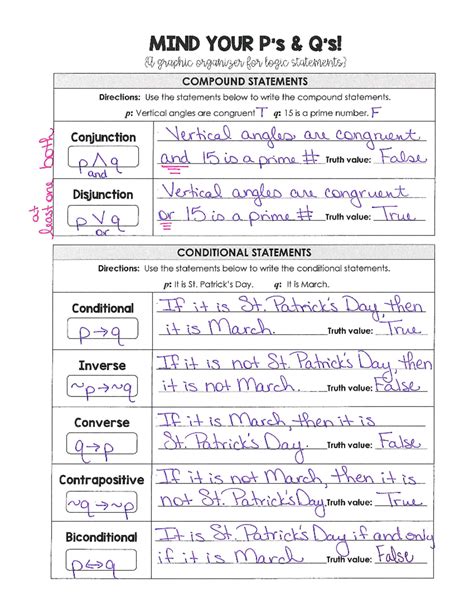 MIND YOUR P's & Q's!
{A graphic organizer for logic statements}
COMPOUND STATEMENTS
Directions: Use the statements below to write the compound statements.
p: Vertical angles are congruent T q: 15 is a prime number. F
both
Conjunction
p∧q
and
Vertical angles are congruent
and 15 is a prime # Truth value: False
at
least one
Disjunction
p∨q
or
Vertical angles are congruent
or 15 is a prime # Truth value: True
CONDITIONAL STATEMENTS
Directions: Use the statements below to write the conditional statements.
p: It is St. Patrick's Day. q: It is March.
Conditional
p→q
If it is St. Patrick's Day, then
it is March. Truth value: True
Inverse
~p→~q
If it is not St. Patrick's Day, then
it is not March. Truth value: False
Converse
q→p
If it is March, then it is
St. Patrick's Day. Truth value: False
Contrapositive
~q→~p
If it is not March, then it is
not St. Patrick's Day. Truth value: True
Biconditional
p↔q
It is St. Patrick's Day if and only
if it is March. Truth value: False